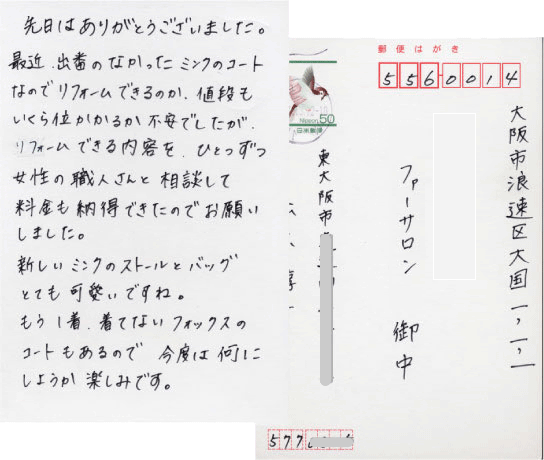 先日はありがとうございました。
最近、出番のなかったミンクのコート
なのでリフォームできるのか、値段も
いくら位かかるか不安でしたが、
リフォームできる内容を、ひとつずつ
女性の職人さんと相談して
料金も納得できたのでお願い
しました。
新しいミンクのストールとバッグ
とても可愛いですね。
もう1着、着てないフォックスの
コートもあるので 今度は何に
しようか楽しみです。
郵便はがき
5560014
大阪市浪速区大国一ー一ー一
ファーサロン
御中
東大阪市
Nippon 50
日本郵便
577